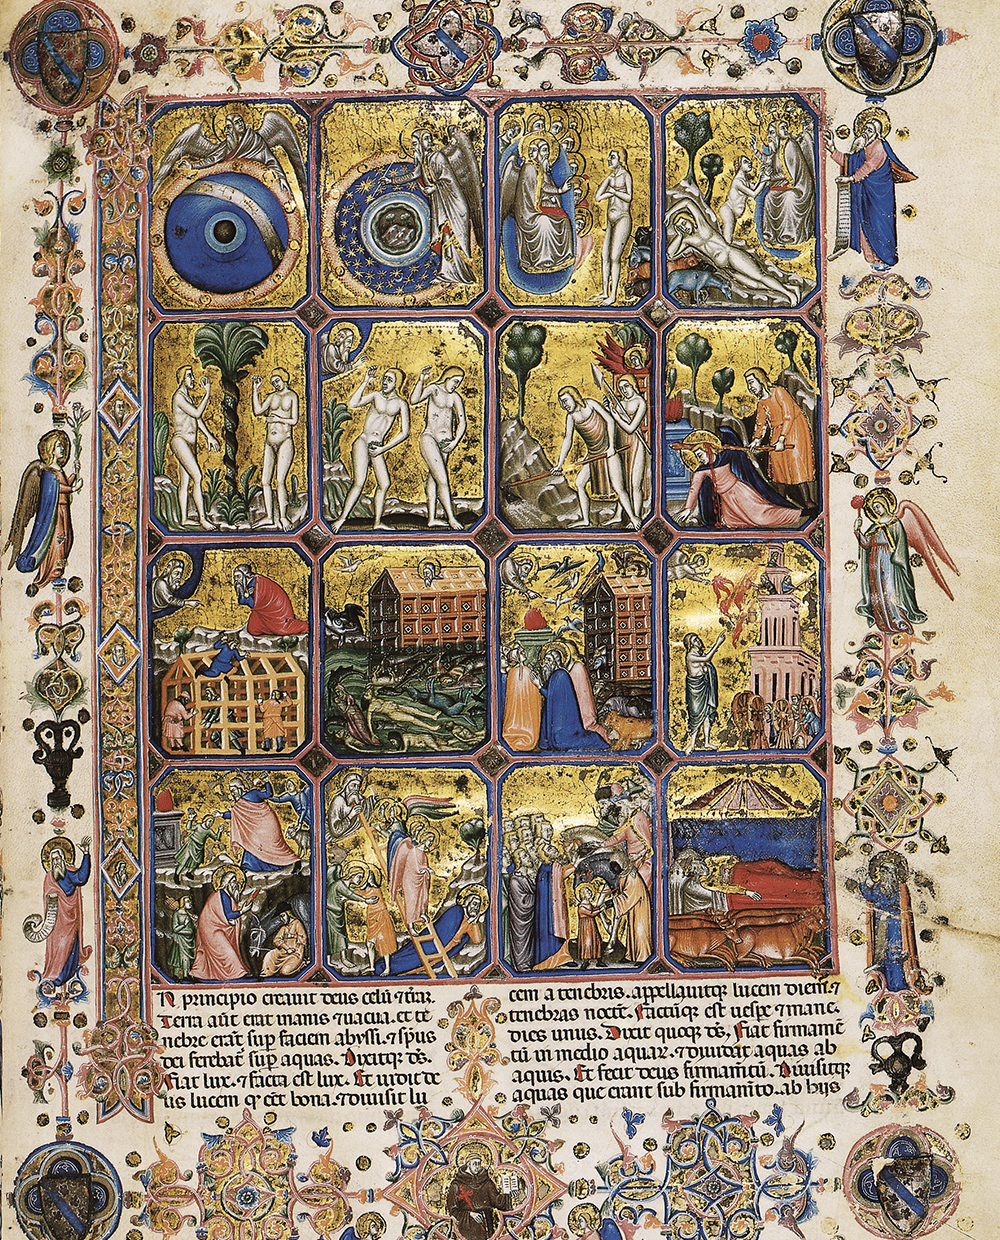 N principio creauit deus celũ ⁊ t̃rã.
Terra aũt erat inanis ⁊ uacua. et te
nebre erãt sup faciem abyssi. ⁊ sp̃us
dei ferebat̃ sup aquas. Dixitqꝫ dẽ.
Fiat lux. ⁊ facta est lux. Et uidit de
us lucem qꝫ eẽt bona. ⁊ diuisit lu
cem a tenebris. appellauitqꝫ lucem diem ⁊
tenebras noctẽ. Factũqꝫ est uespe ⁊ mane.
dies unus. Dixit quoqꝫ dẽ. Fiat firmamẽ
tũ in medio aquaꝝ. ⁊ diuidat aquas ab
aquis. Et fecit deus firmamẽtũ. Diuisitqꝫ
aquas que erant sub firmam̃to. ab hijs